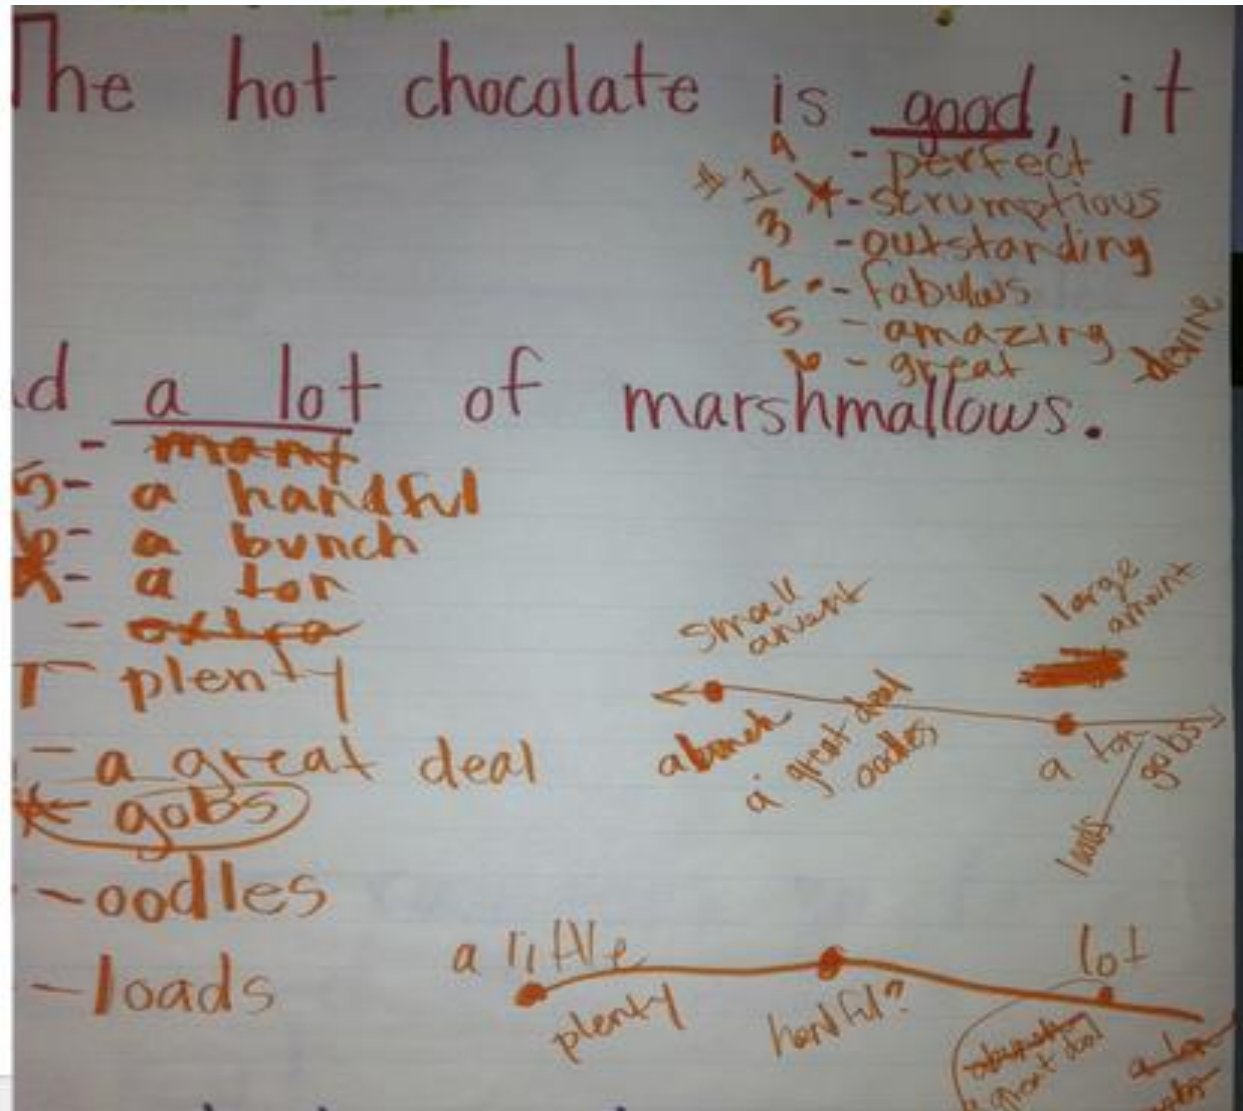 The hot chocolate is good, it
4 - perfect
#1 - scrumptious
3 - outstanding
2 - fabulous
5 - amazing
6 - great
devine
d a lot of marshmallows.
- many
5- a handful
6- a bunch
- a ton
- extra
- plenty
- a great deal
- gobs
- oodles
- loads
small
amount
large
amount
a bunch
a great deal
oodles
a ton
gobs
loads
a little
lot
plenty
handful?
a great deal
a ton
gobs